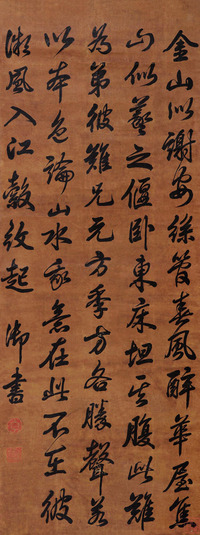 金山似謝安絲管春風醉華屋焦
山似羲之偃臥東床坦其腹此難
為弟彼難兄元方季方各勝聲若
以本色論山水我意在此不在彼
風入江縠紋起 御書